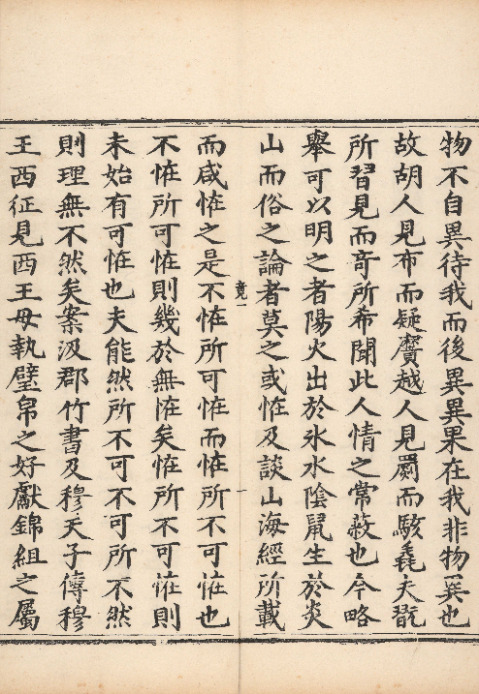 物不自異待我而後異異果在我非物異也
故胡人見布而疑黂越人見罽而駭毳夫翫
所習見而奇所希聞此人情之常蔽也今略
舉可以明之者陽火出於氷水陰鼠生於炎
山而俗之論者莫之或恠及談山海經所載
竟一
一
而咸恠之是不恠所可恠而恠所不可恠也
不恠所可恠則幾於無恠矣恠所不可恠則
未始有可恠也夫能然所不可不可所不然
則理無不然矣案汲郡竹書及穆天子傳穆
王西征見西王母執璧帛之好獻錦組之屬